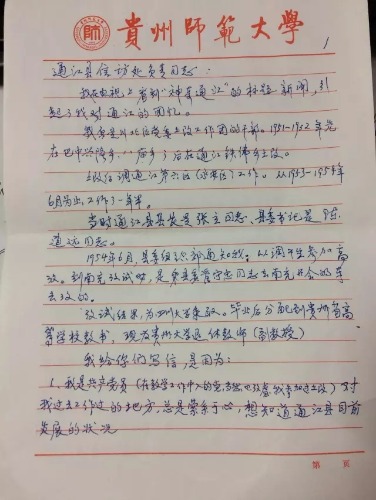 貴州師範大學
1
通江县信访处负责同志：
我在电视上看到“神奇通江”的标题新闻，引
起了我对通江的回忆。
我曾是川北区党委土改工作团的干部。1951-1952年先
在巴中兴隆乡、后在通江铁佛乡土改。
土改后调通江第六区工作。从1953-1954年
6月为止，工作了一年半。
当时通江县县长是张立同志，县委书记是陈
道远同志。
1954年6月，县委组织部通知我：从调干生参加高
考。到南充考试时，是同志去南充开会的带
去考的。
考试结果，为四川大学录取。毕业后分配到贵州省高
等学校教书，现为贵州大学退休教师（副教授）
我给你们写信，是因为：
1、我是共产党员 对
我过去工作过的地方，总是萦系于心，想知道通江县目前
发展的状况
第 頁